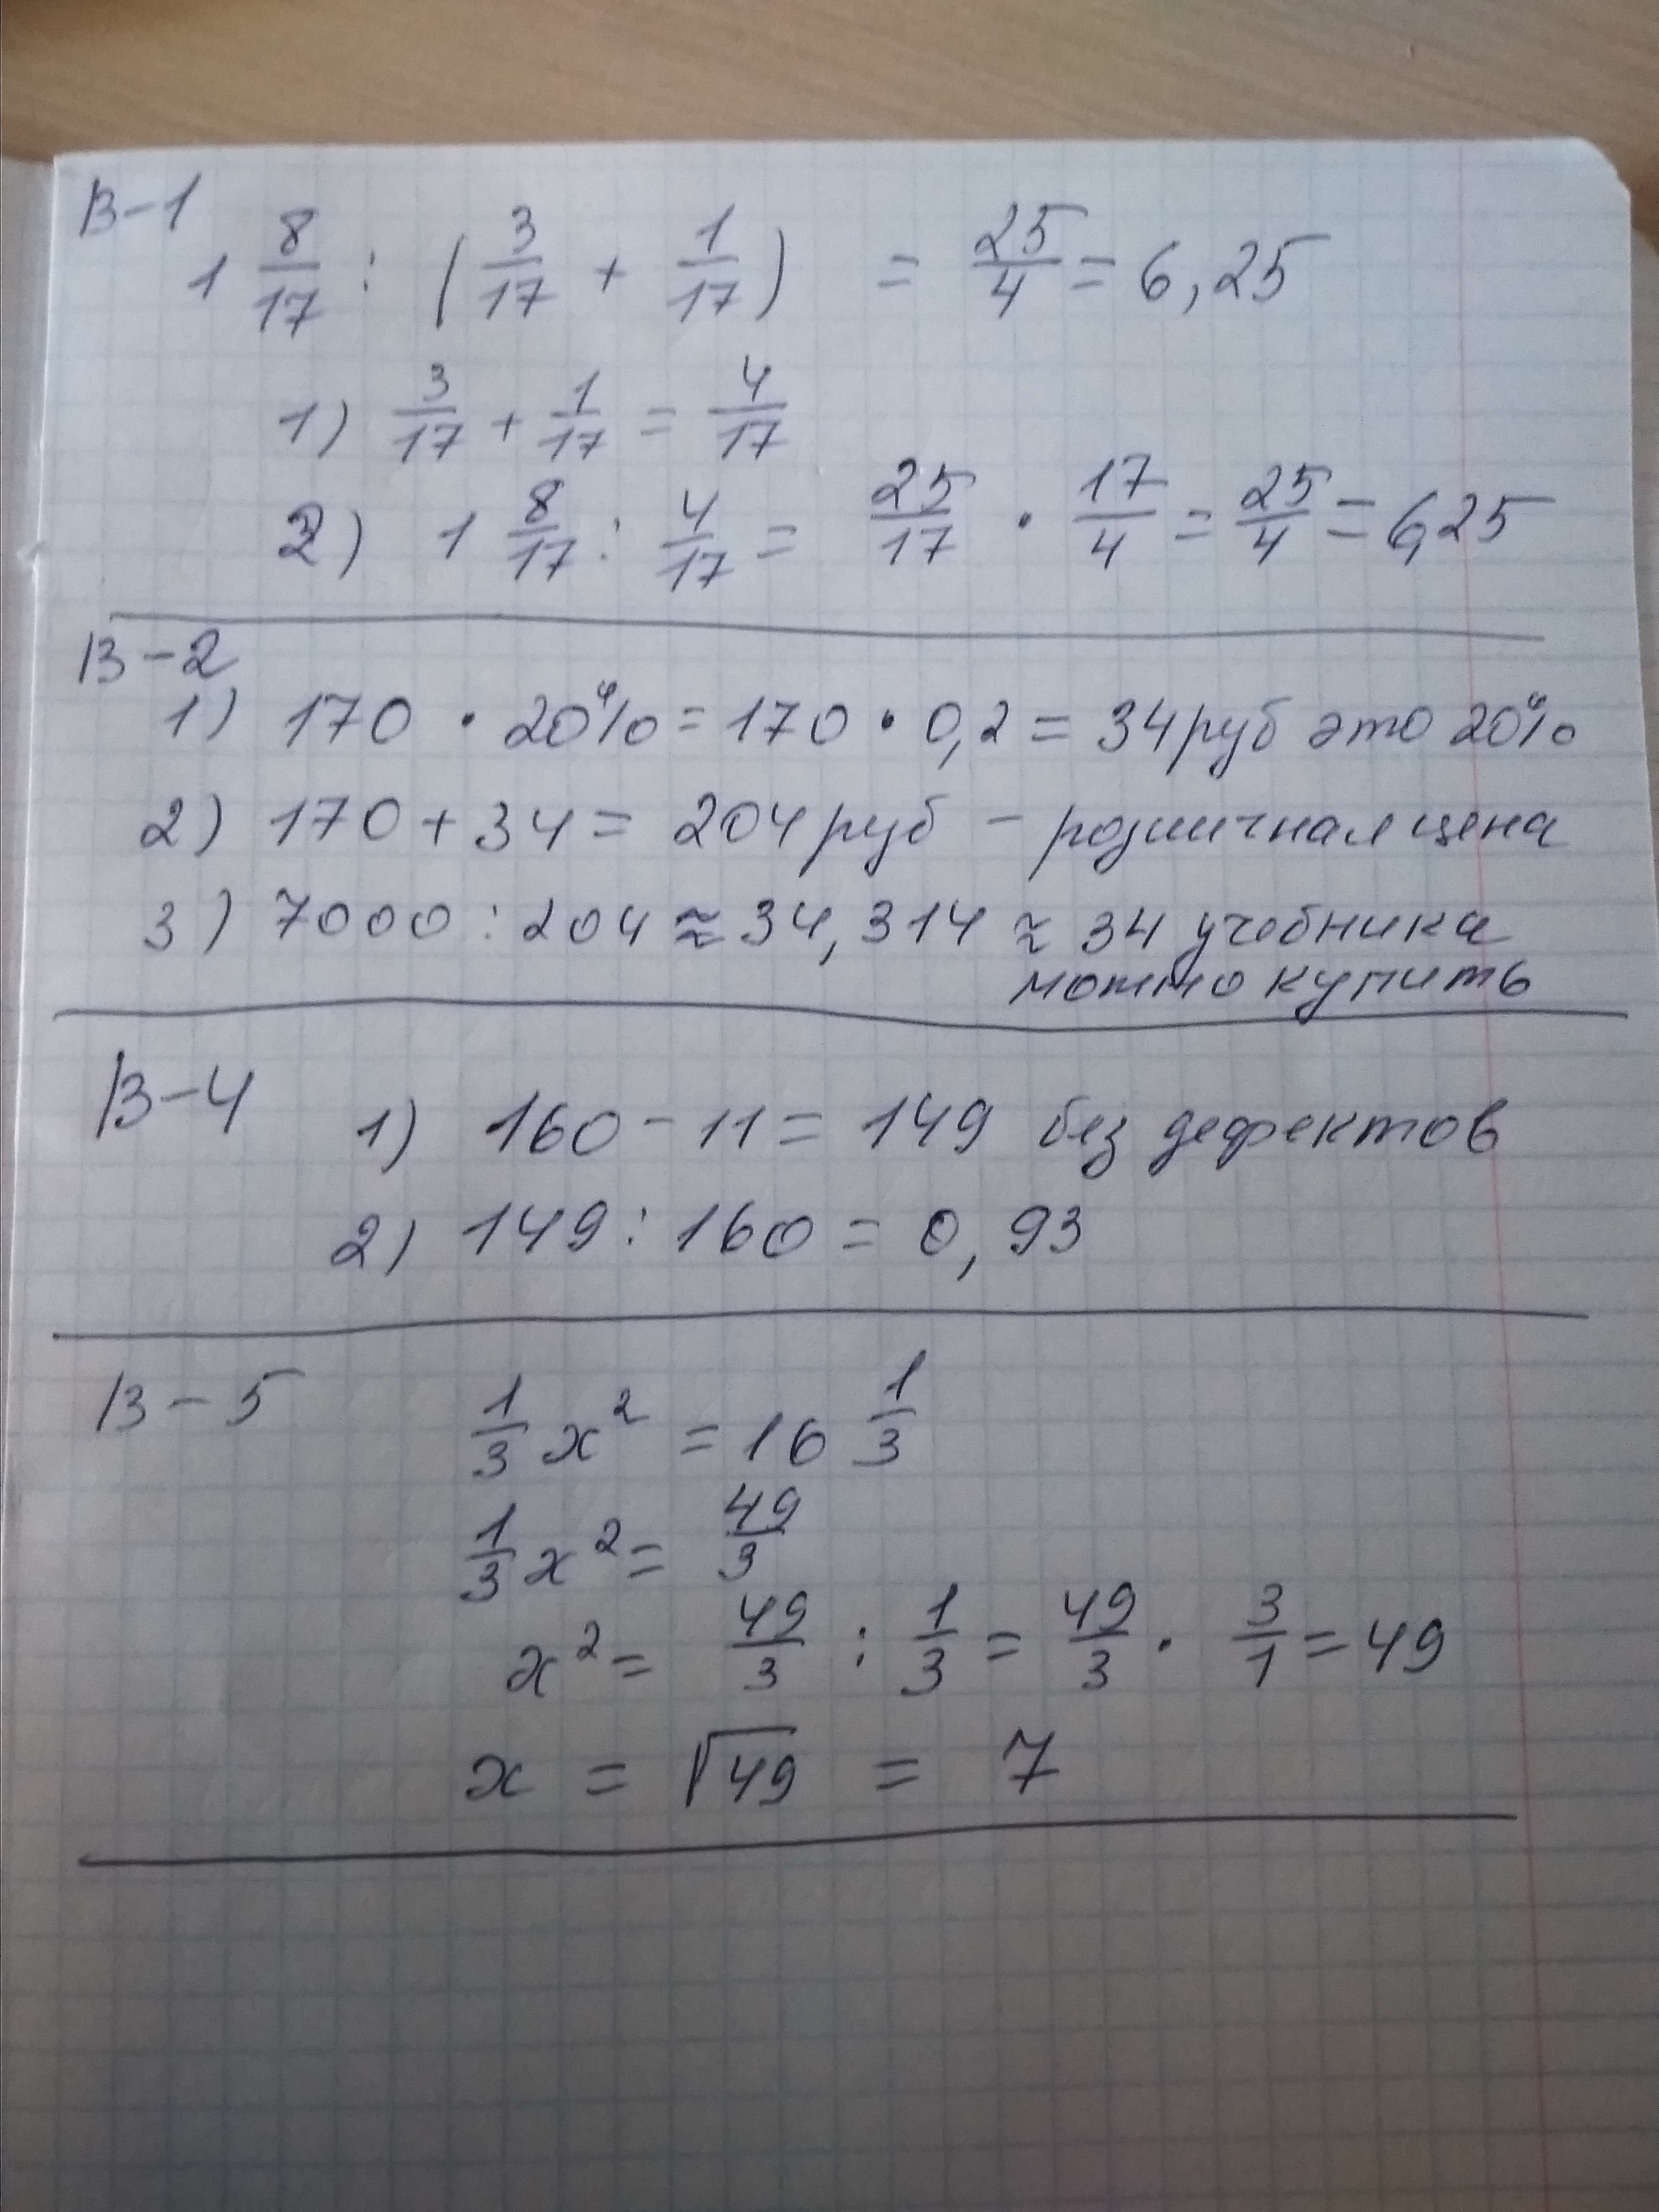 В-1
1 8/17 : (3/17 + 1/17) = 25/4 = 6,25
1) 3/17 + 1/17 = 4/17
2) 1 8/17 : 4/17 = 25/17 · 17/4 = 25/4 = 6,25
В-2
1) 170 · 20% = 170 · 0,2 = 34 руб это 20%
2) 170 + 34 = 204 руб - розничная цена
3) 7000 : 204 ≈ 34,314 ≈ 34 учебника
можно купить
В-4
1) 160 - 11 = 149 без дефектов
2) 149 : 160 = 0,93
В-5
1/3 x² = 16 1/3
1/3 x² = 49/3
x² = 49/3 : 1/3 = 49/3 · 3/1 = 49
x = √49 = 7